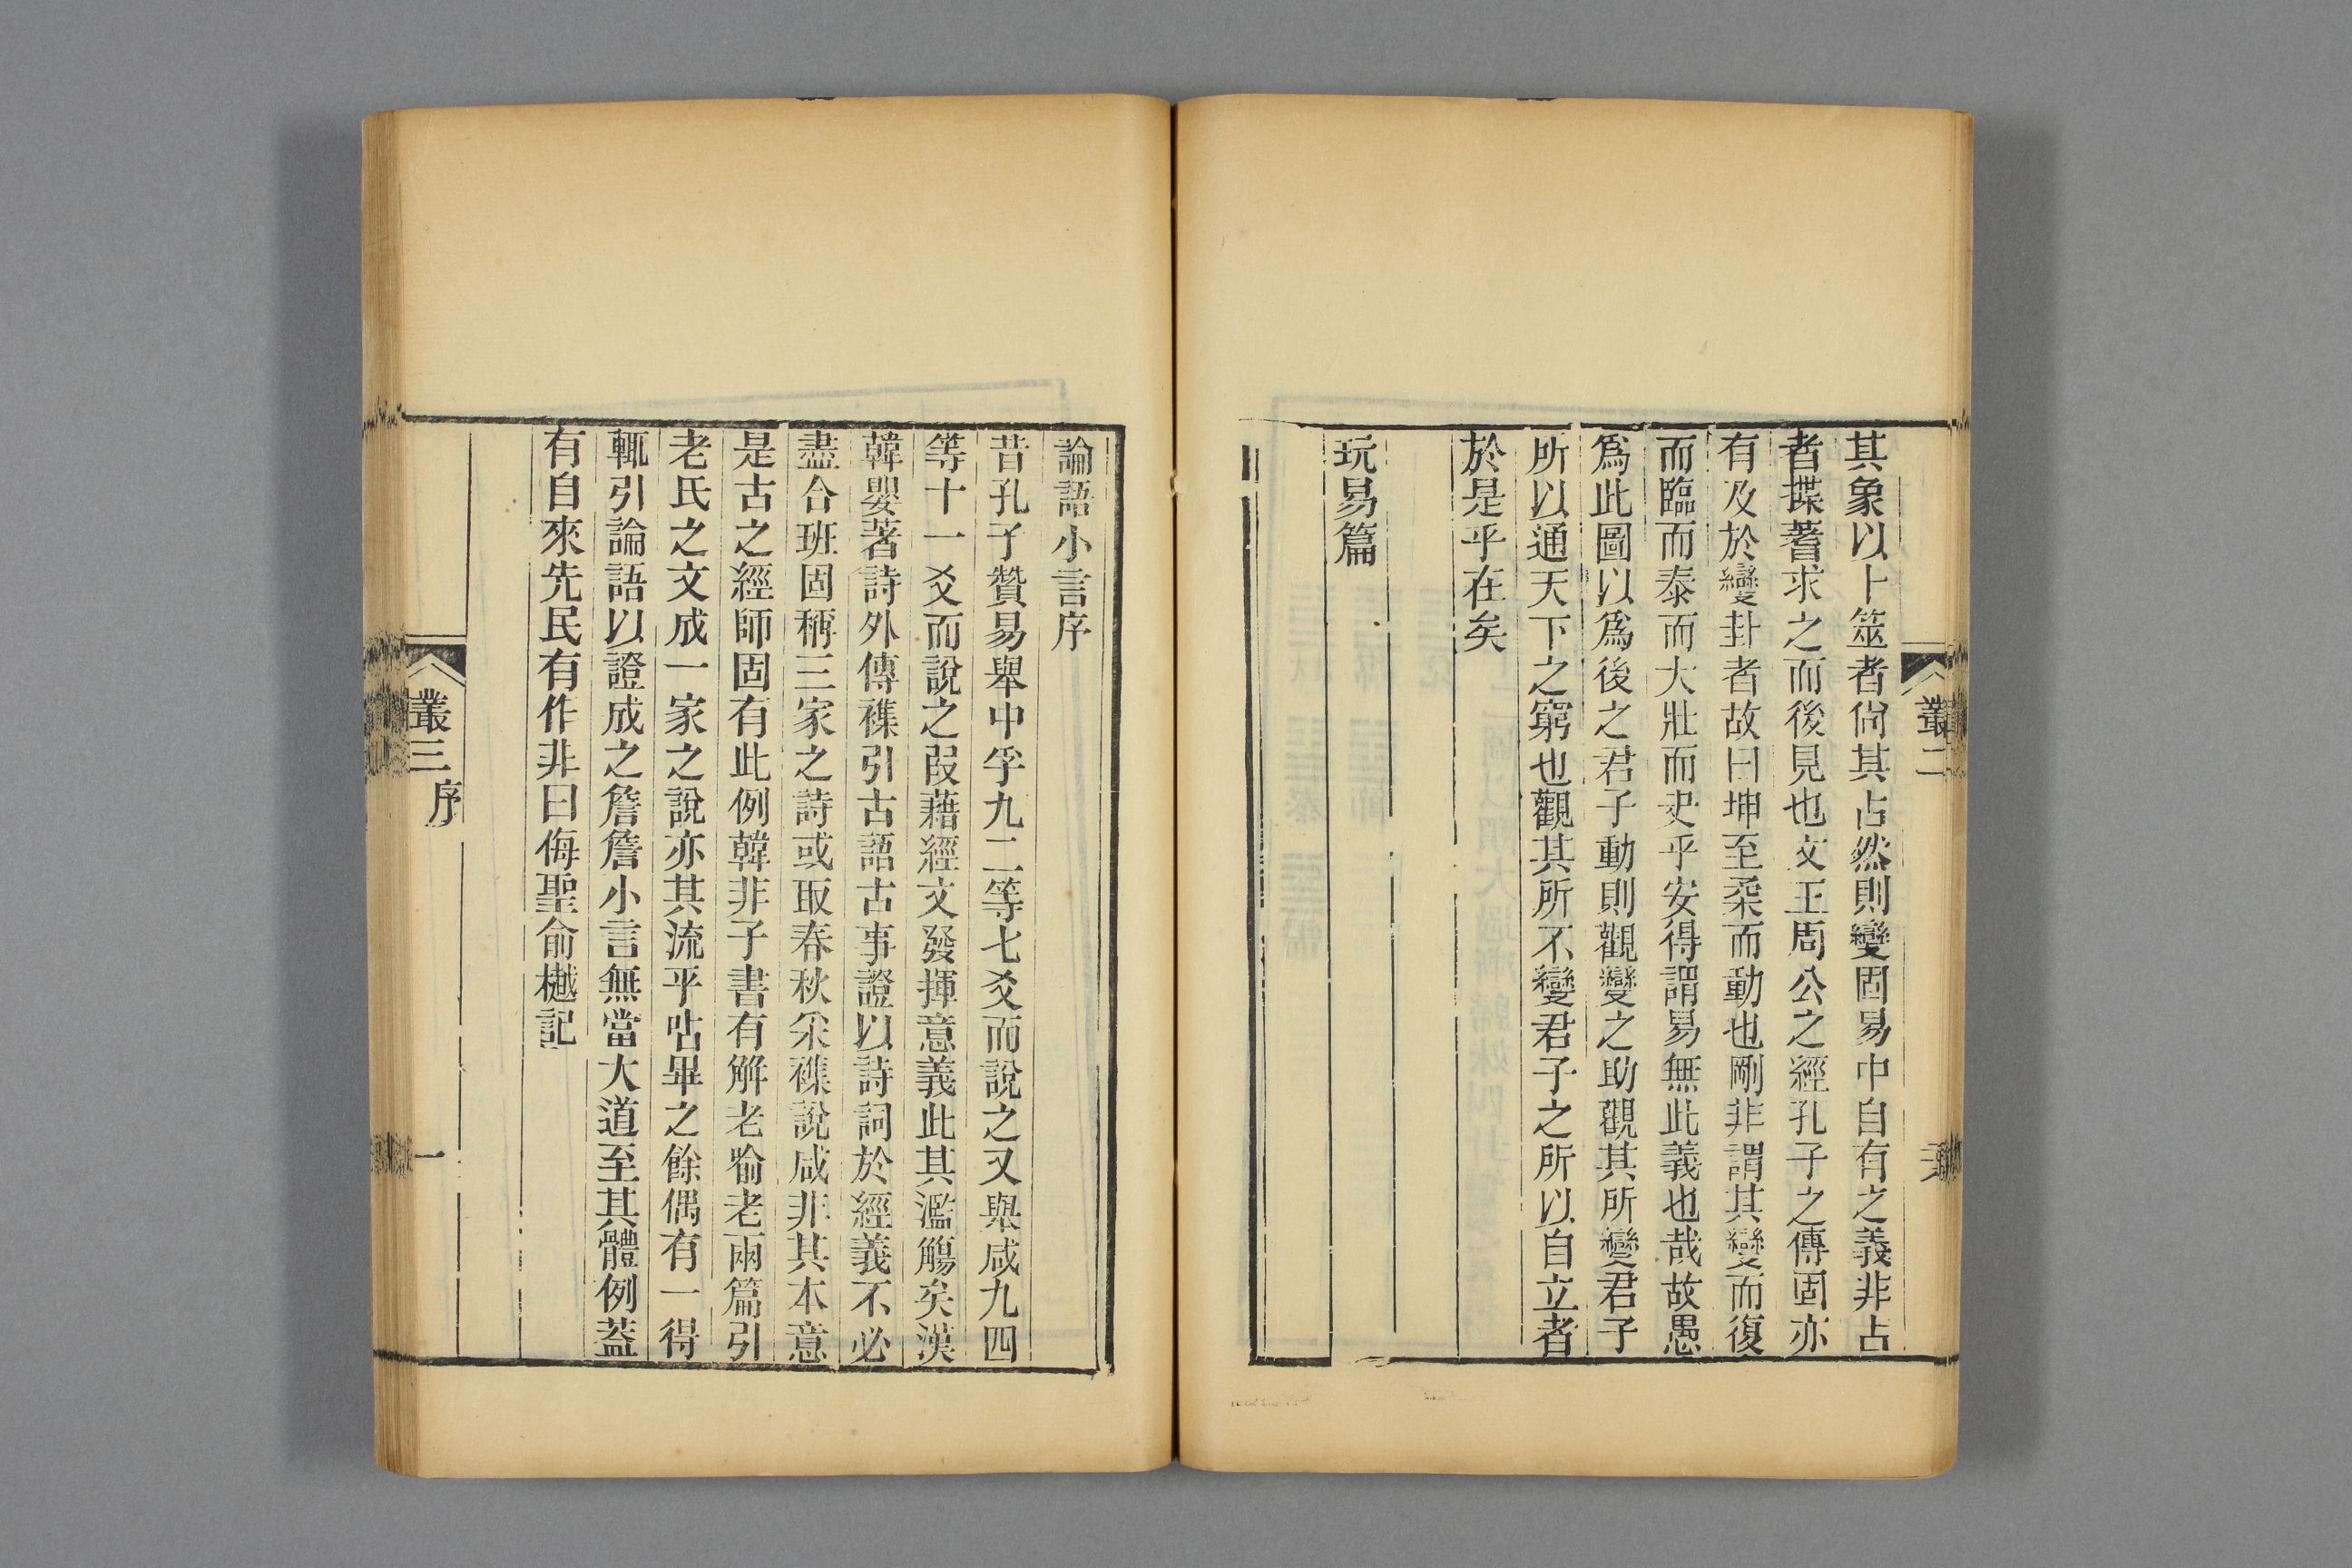 其象以卜筮者尙其占然則變固易中自有之義非占
者揲蓍求之而後見也文王周公之經孔子之傳固亦
有及於變卦者故曰坤至柔而動也剛非謂其變而復
而臨而泰而大壯而夬乎安得謂易無此義也哉故愚
爲此圖以爲後之君子動則觀變之助觀其所變君子
所以通天下之窮也觀其所不變君子之所以自立者
於是乎在矣
玩易篇
叢二
論語小言序
昔孔子贊易舉中孚九二等七爻而說之又舉咸九四
等十一爻而說之叚藉經文發揮意義此其濫觴矣漢
韓嬰著詩外傳襍引古語古事證以詩詞於經義不必
盡合班固稱三家之詩或取春秋采襍說咸非其本意
是古之經師固有此例韓非子書有解老喻老兩篇引
老氏之文成一家之說亦其流乎呫畢之餘偶有一得
輒引論語以證成之詹詹小言無當大道至其體例葢
有自來先民有作非曰侮聖俞樾記
叢三序
一